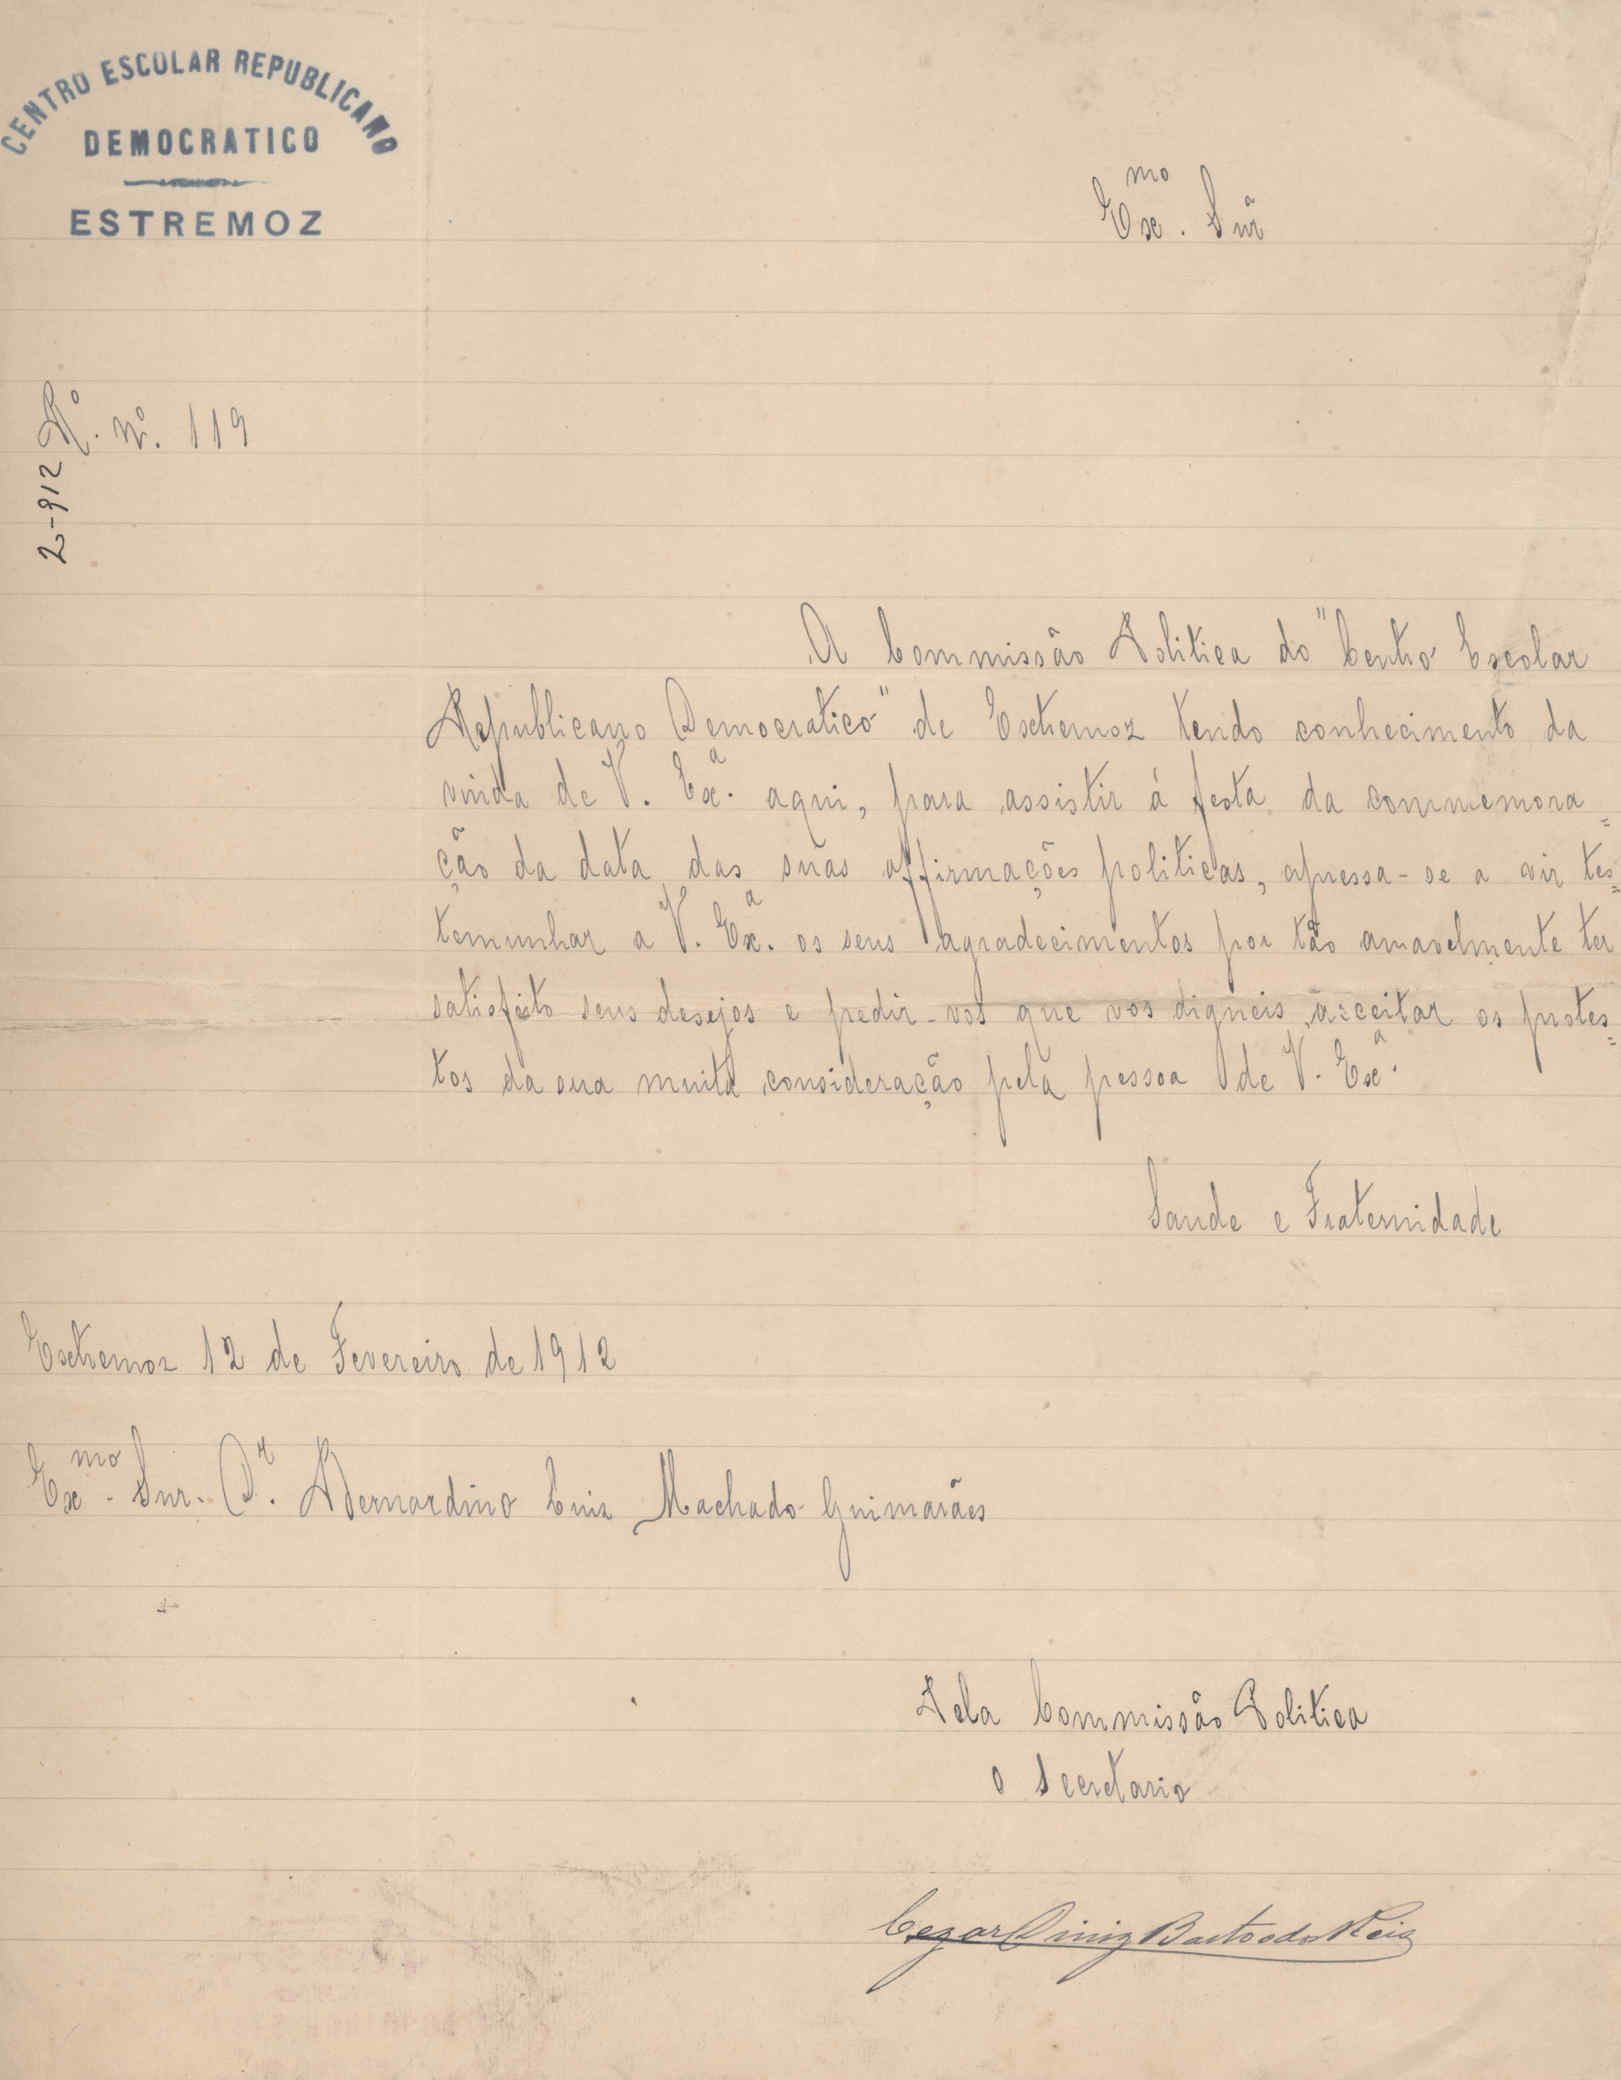 CENTRO ESCOLAR REPUBLICANO
DEMOCRATICO
ESTREMOZ
Exmo. Snr
Rº. Nº. 119
2-912
A Commissão Politica do "Centro Escolar
Republicano Democratico" de Extremoz tendo conhecimento da
vinda de V. Exª. aqui, para assistir á festa da commemora=
ção da data das suas affirmações politicas, apressa-se a vir tes=
temunhar a V. Exª. os seus agradecimentos por tão amavelmente ter
satisfeito seus desejos e pedir-vos que vos digneis acceitar os protes=
tos da sua muita consideração pela pessoa de V. Exª.
Saude e Fraternidade
Extremoz 12 de Fevereiro de 1912
Exmo. Snr. Dr. Bernardino Luiz Machado Guimarães
Pela Commissão Politica
O Secretario
Cezar Diniz Bastos dos Reis